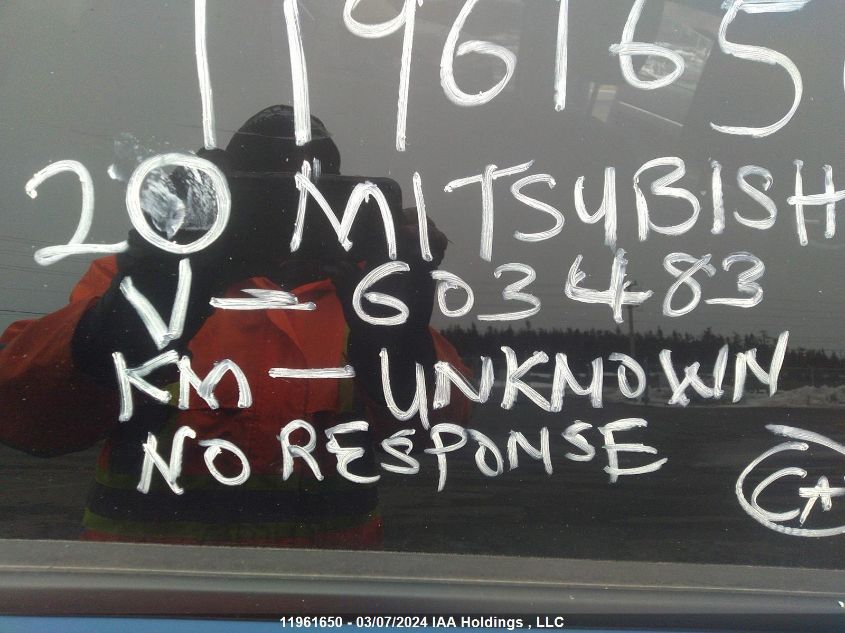 1196165
20 MITSUBISH
V-603483
KM-UNKNOWN
NO RESPONSE
CA
11961650 - 03/07/2024 IAA Holdings , LLC